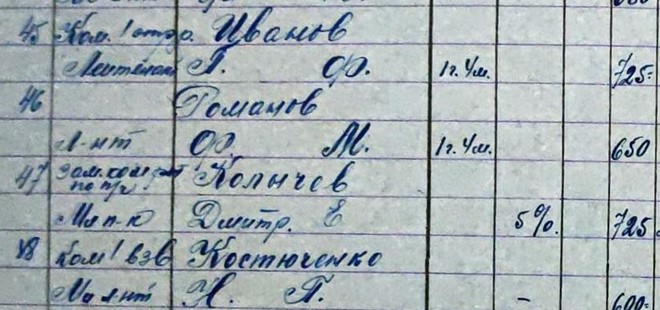 45 Ком. 1 отд. Иванов
Лейтенант Г. Ф. 1г. 4м. 725-
46 Романов
Л-нт Ф. М. 1г. 4м. 650
47 Зам. ком Колычев
по п/ч
Мл п-к Дмитр. Е 5%. 725
48 Ком 1 взв Костюченко
Мл л-нт Н. П. - 600-